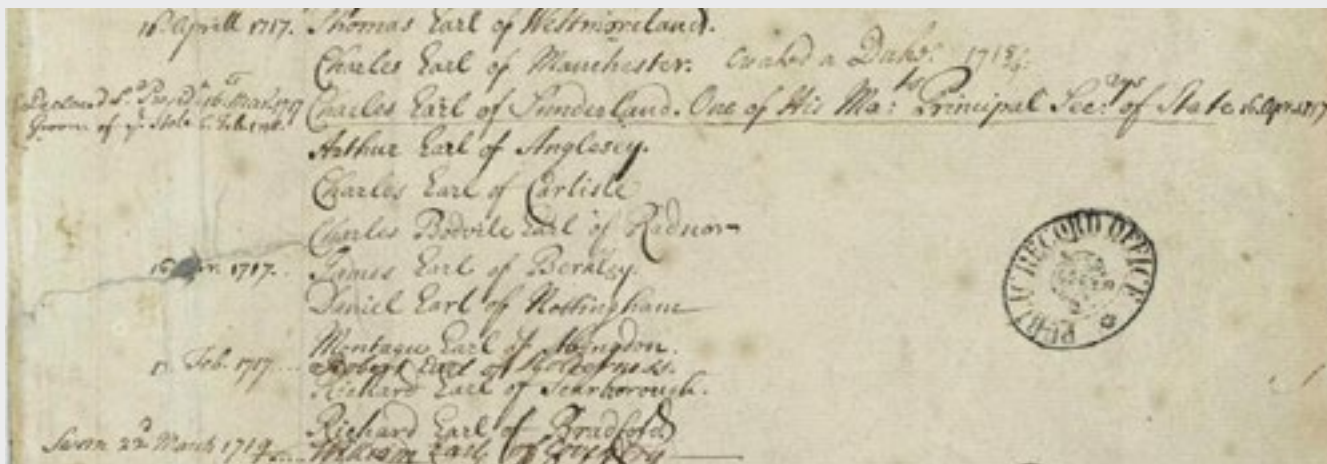 16 Aprill 1717. Thomas Earl of Westmoreland.
Charles Earl of Manchester. Created a Duke. 1718/9.
Declared Ld. Presdt. 16 Mar. 1717 Charles Earl of Sunderland. One of His Ma:ts Principal Sec:rys of State 16. Apr. 1717
Groom of ye Stole 6. Feb.
Arthur Earl of Anglesey.
Charles Earl of Carlisle
Charles Bodvile Earl of Radnor
16 Apr. 1717. James Earl of Berkley.
Daniel Earl of Nottingham
Montagu Earl of Abingdon.
Feb. 1717 Robert Earl of Holderness.
Richard Earl of Scarborough.
Richard Earl of Bradford
Sworn 22d March 1719 William Earl of Coventry
PUBLIC RECORD OFFICE